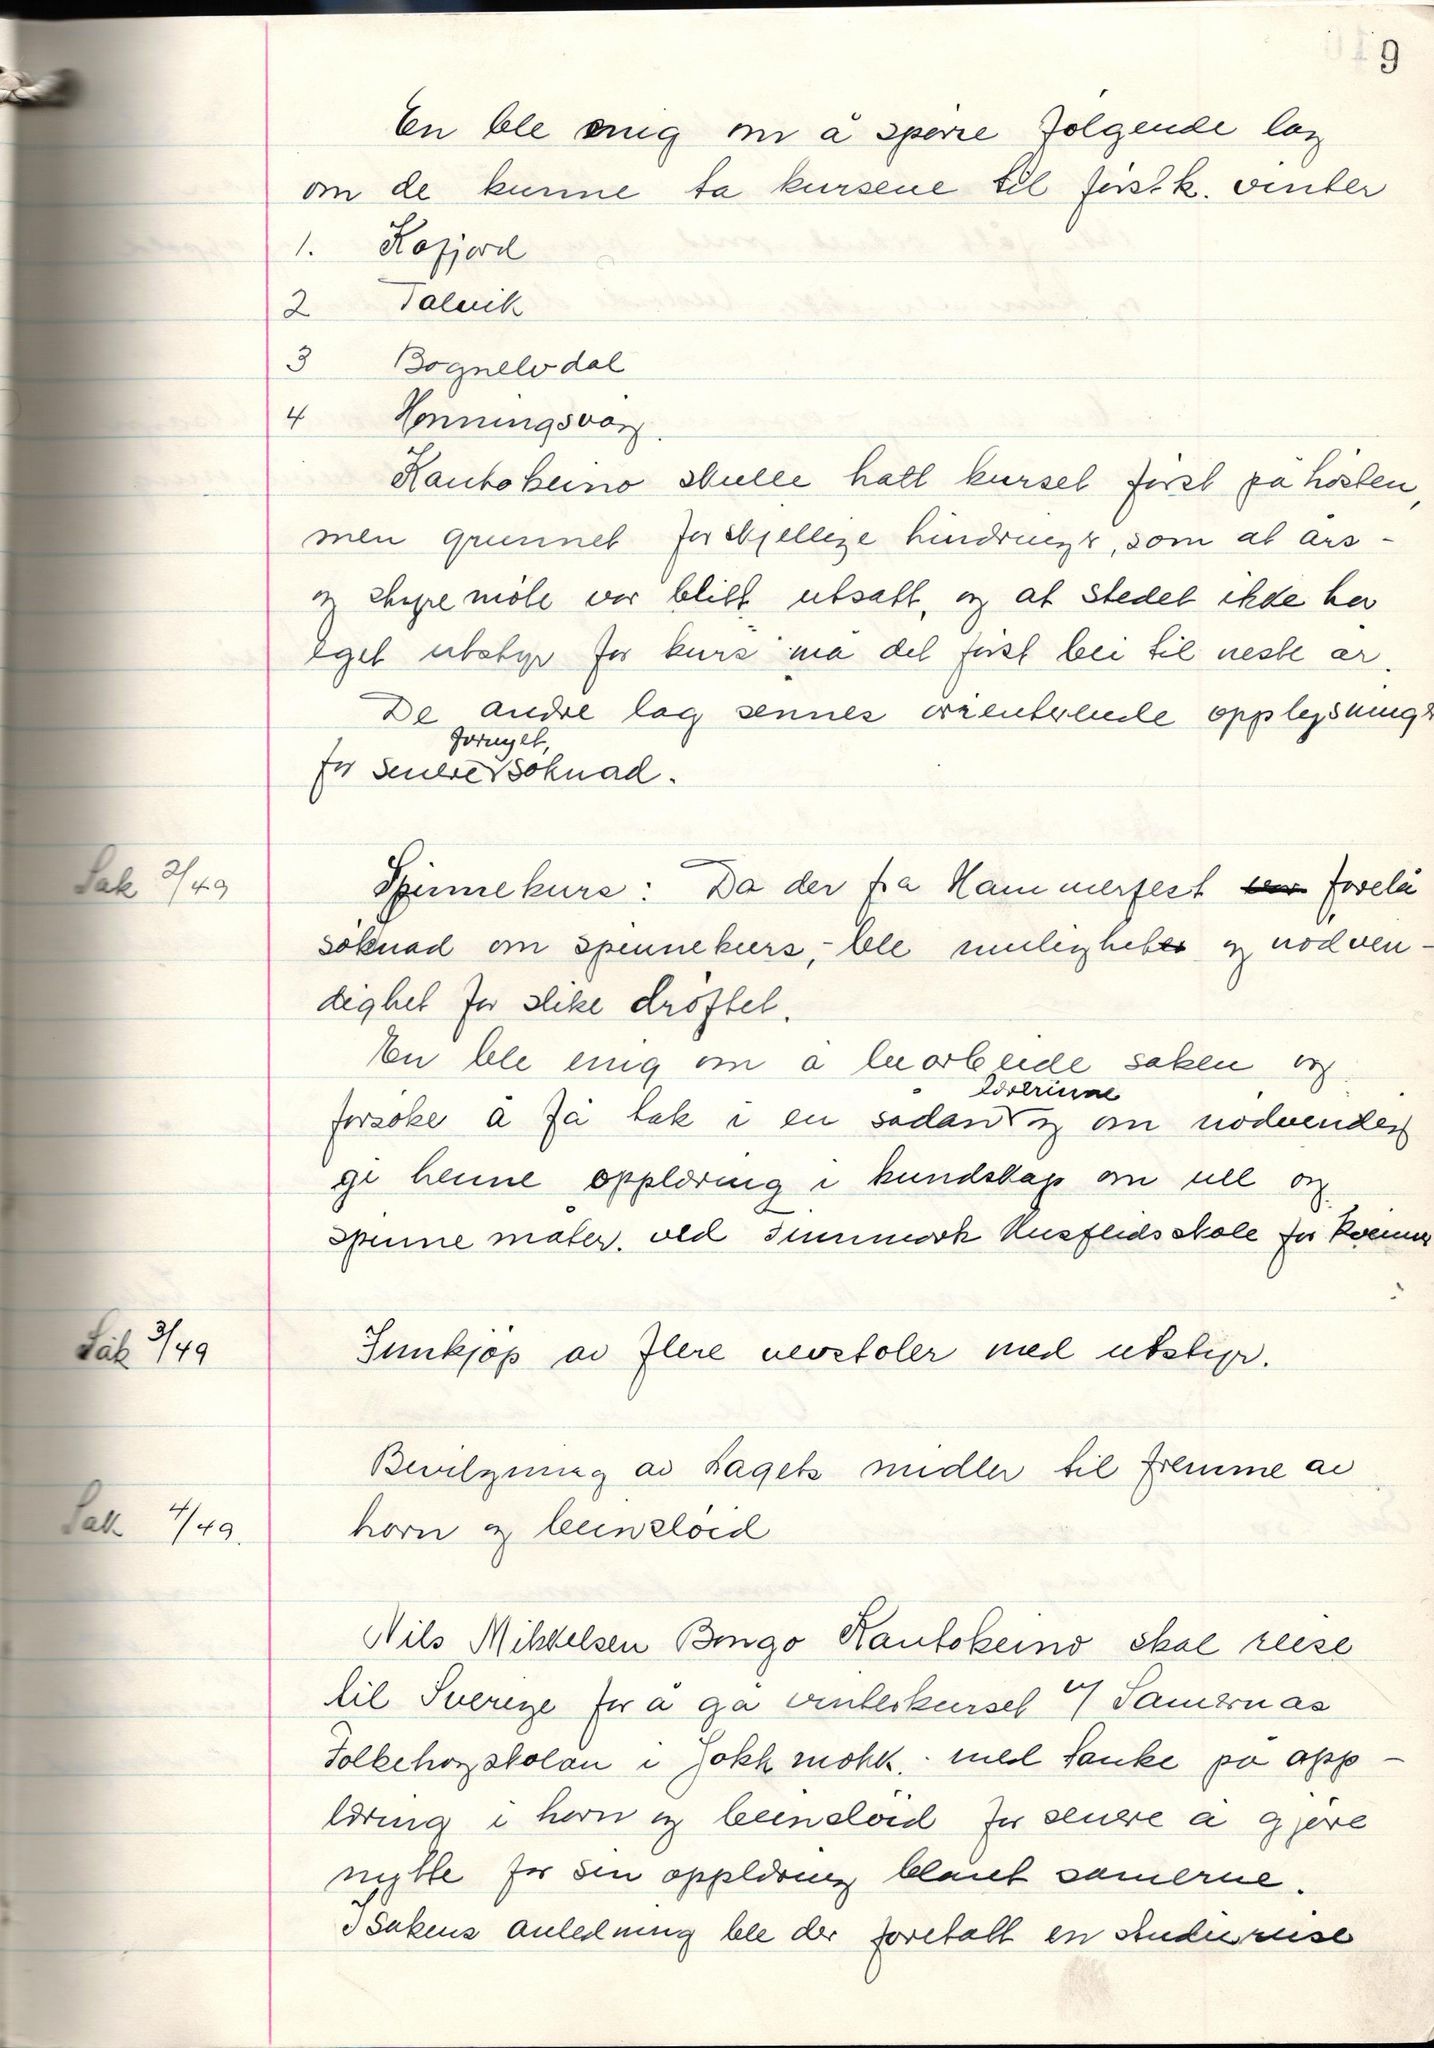 9
En ble enig om å spørre følgende lag
om de kunne ta kursene til førstk. vinter
1. Kåfjord
2 Talvik
3 Bognelvdal
4 Honningsvåg.
Kautokeino skulle hatt kurset først på hösten,
men grunnet forskjellige hindringer, som at års-
og styremöte var blitt utsatt, og at stedet ikke har
eget utstyr for kurs må det først bli til neste år.
De andre lag sennes orienterende opplysninger
for senere fornyet, søknad.
Sak 2/49 Spinnekurs: Da der fra Hammerfest forelå
søknad om spinnekurs, - ble mulighet og nødven-
dighet for slike dröftet.
En ble enig om å bearbeide saken og
forsøke å få tak i en sådan lærerinne og om nødvendig
gi henne opplæring i kundskap om ull og
spinnemåter. ved Finnmark Husflidsskole for Kvinner
Sak 3/49 Innkjøp av flere vevstoler med utstyr.
Bevilgning av Lagets midler til fremme av
Sak 4/49. horn og beinsløid
Nils Mikkelsen Bongo Kautokeino skal reise
til Sverige for å gå vinterkurset v/ Samernas
Folkehögskolan i Jokkmokk. med tanke på opp-
læring i horn og beinsløid for senere å gjøre
nytte for sin opplæring blant samerne.
I sakens anledning ble der foretatt en studiereise